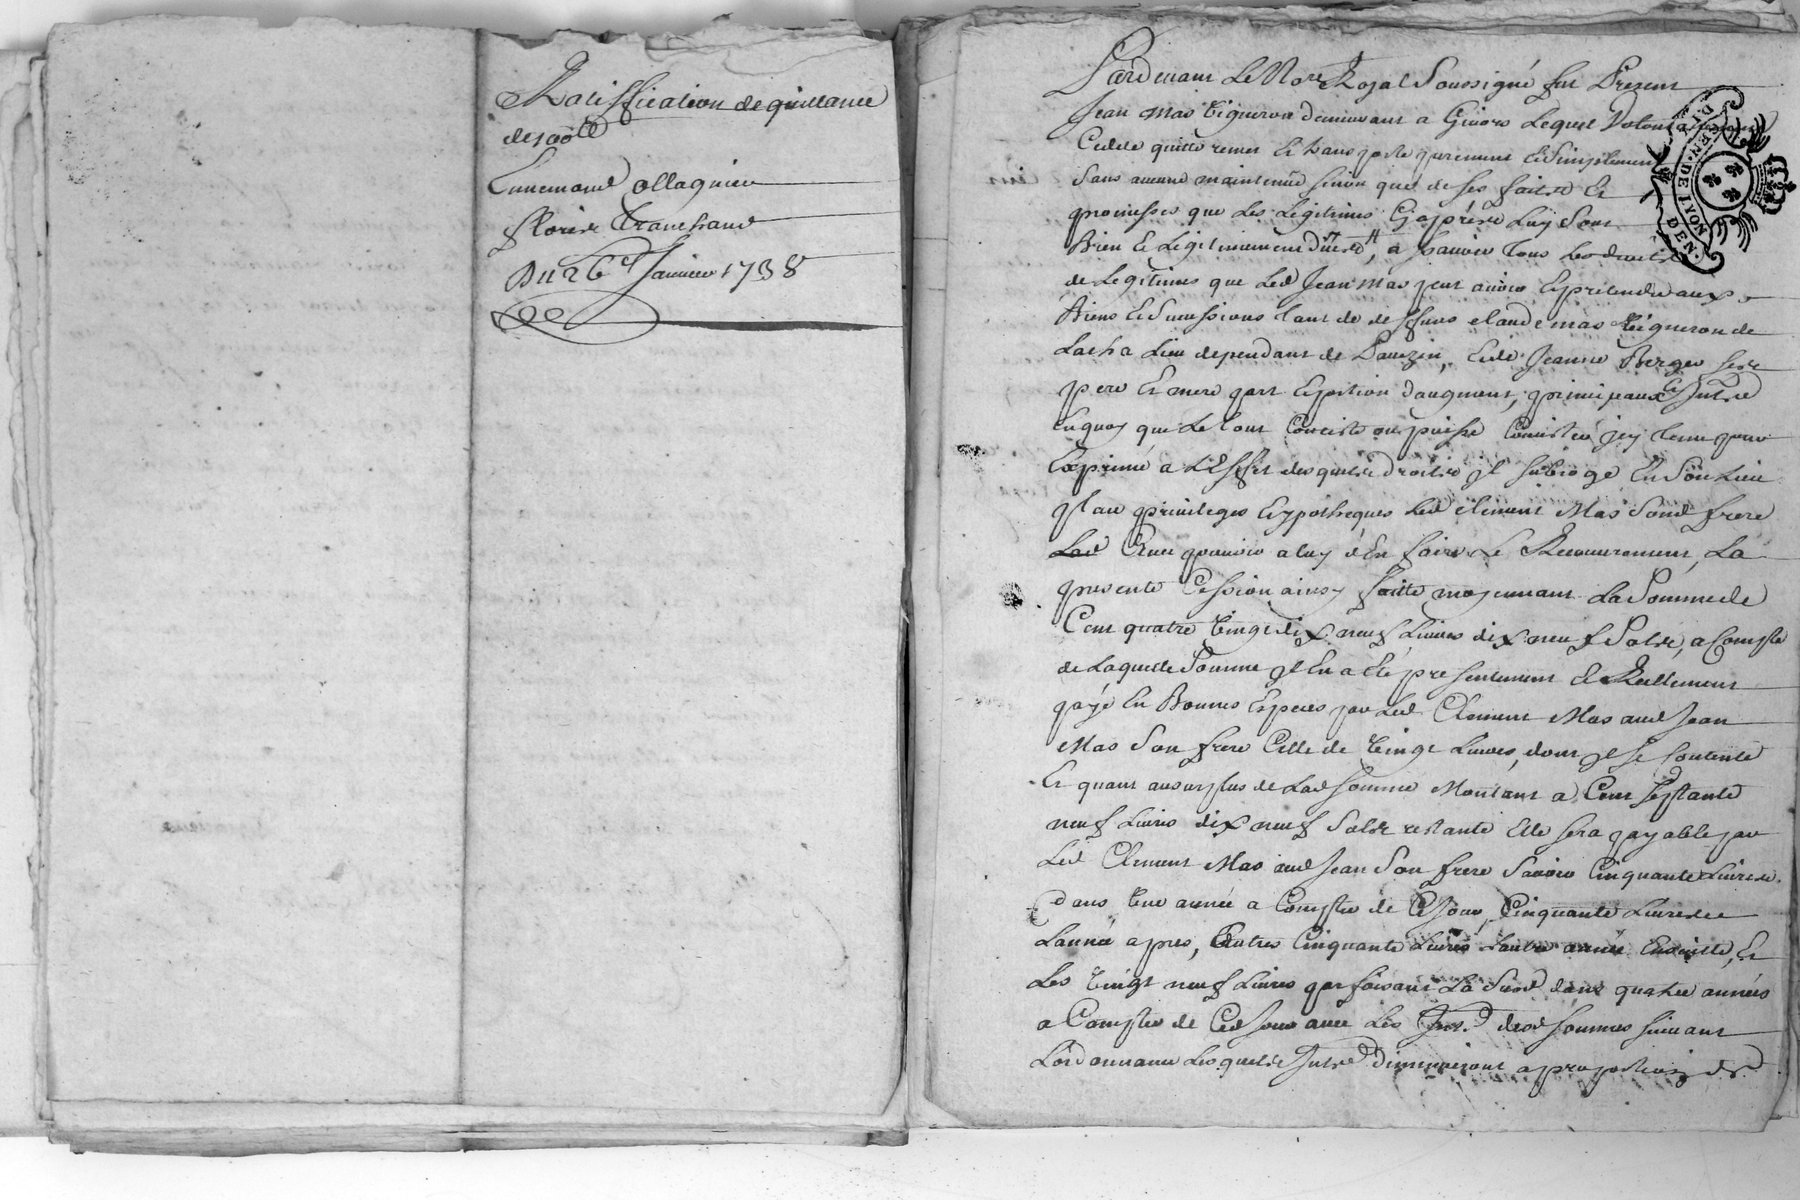 Ratiffication de quittance
de 100ll
Ennemond ollagnier
fleurie tranchand
Du 26e Janvier 1738
Pardevant Le No.re Royal Soussigné fut Present
Jean mas vigneron demeurant a Givors Lequel volontairement
Cedde quitte remet et transporte purement et Simplement
Sans aucune maintenue sinon que de ses faits et
promesses que les legitimes cy après Luy Sont
Bien et Legitimement dues, a sçavoir tous les droits
de Legitimes que Led Jean mas peut avoir et pretendre aux
Biens et Successions tant de deffunt claude mas vigneron de
Lacha Lieu dependant de Dauzin, et de Jeanne Berger ses
pere et mere part et portion d'augment, principaux et Interets
en quoy que Le tout Conciste ou puisse Concister icy tenu pour
Exprimé a L'Effet desquels droits il subroge En Son Lieu
place privileges et ypotheques Led clement Mas Sond frere
Lad avec pouvoir a luy d'En faire Le Recouvrement, La
presente Cession ainsy faitte moyennant La Somme de
Cent quatre vingt dix neuf Livres dix neuf Sols, a Compte
de Laquelle Somme il En a Eté presentement et Reellement
payé En Bonnes Especes par Led Clement Mas aud Jean
Mas Son frere Celle de vingt Livres, dont il se Contente
Et quant au surplus de Lad somme Montant a Cent septante
neuf Livres dix neuf Sols restante Elle sera payable par
Led Clement Mas aud Jean Son frere Savoir Cinquante Livres
dans une année a Compter de Ce Jour, Cinquante Livres
L'année apres, Autres Cinquante Livres L'autre année Ensuitte, Et
Les vingt neuf Livres parfaisant La Susd dans quatre années
a Compter de Ced Jour avec Les Int. desd sommes suivant
L'ordonnance Lesquels Interets diminueront a proportion des
GEN. DE LYON
DEN.